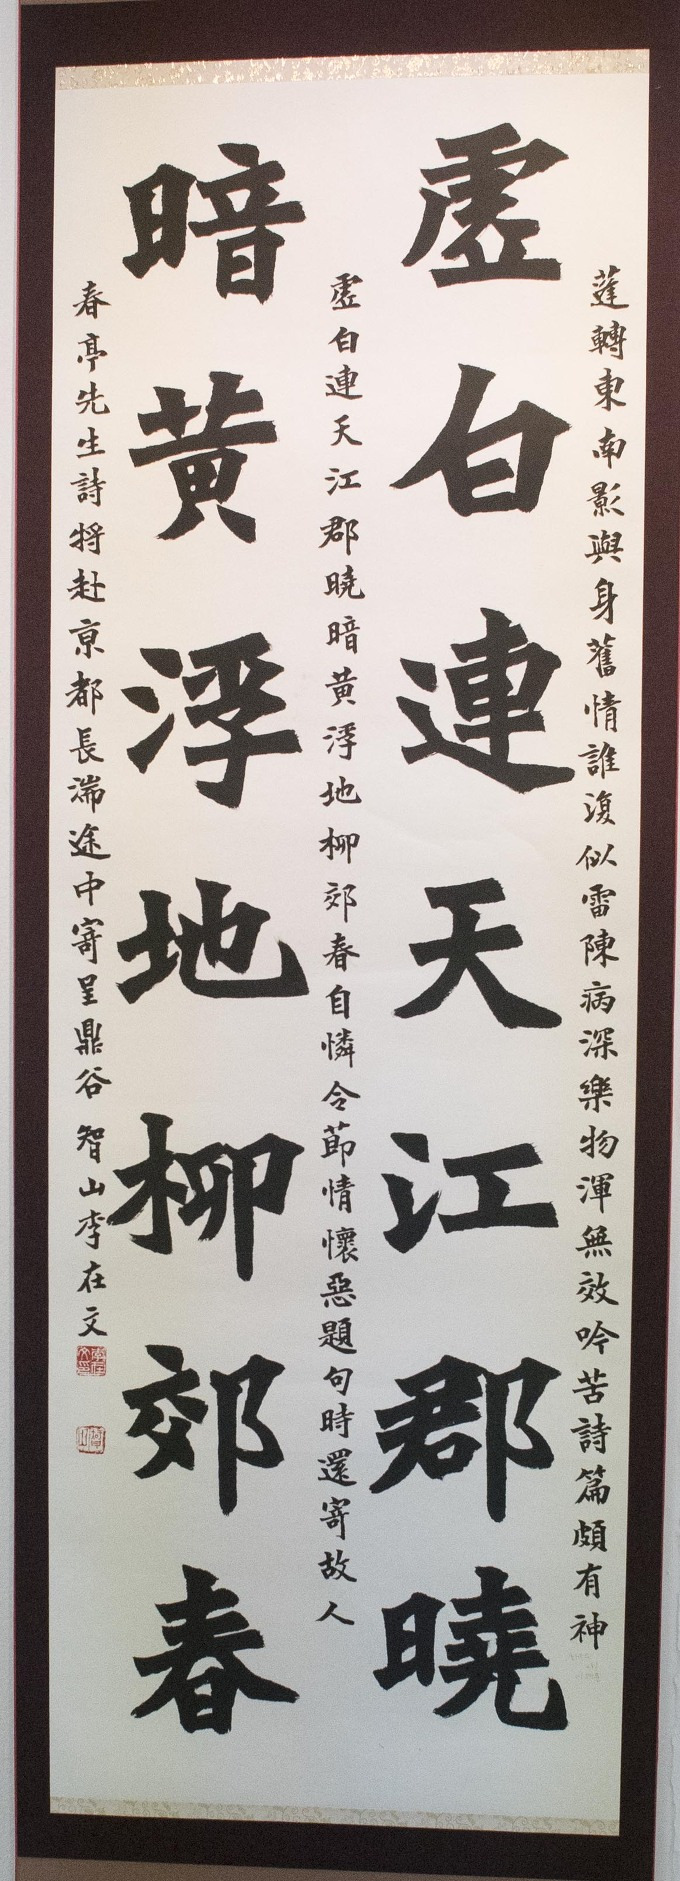 蓬轉東南影與身舊情誰復似雷陳病深樂物渾無效吟苦詩篇頗有神
虛白連天江郡曉
虛白連天江郡曉暗黃浮地柳郊春自憐令節情懷惡題句時還寄故人
暗黃浮地柳郊春
春亭先生詩將赴京都長湍途中寄呈鼎谷 智山李在文